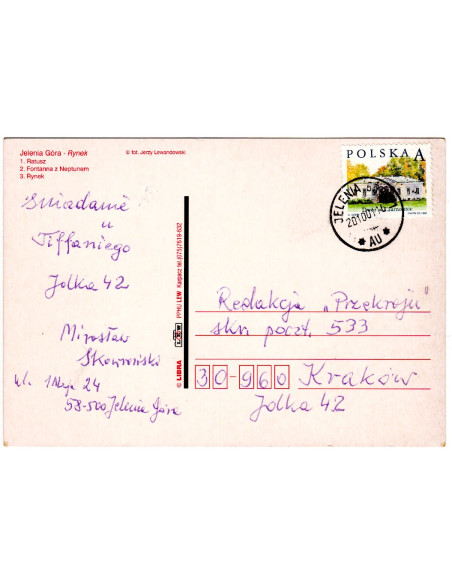 Jelenia Góra - Rynek
1. Ratusz
2. Fontanna z Neptunem
3. Rynek
© fot. Jerzy Lewandowski
Śniadanie
u
Tiffaniego
Jolka 42
Mirosław
Skowroński
ul. 1 Maja 24
58-500 Jelenia Góra
© LIBRA
PPHU LEW Karpacz tel.(075)7619-632
POLSKA A
JELENIA
AU
Redakcja „Przekroju"
skr. poczt. 533
30-960 Kraków
Jolka 42